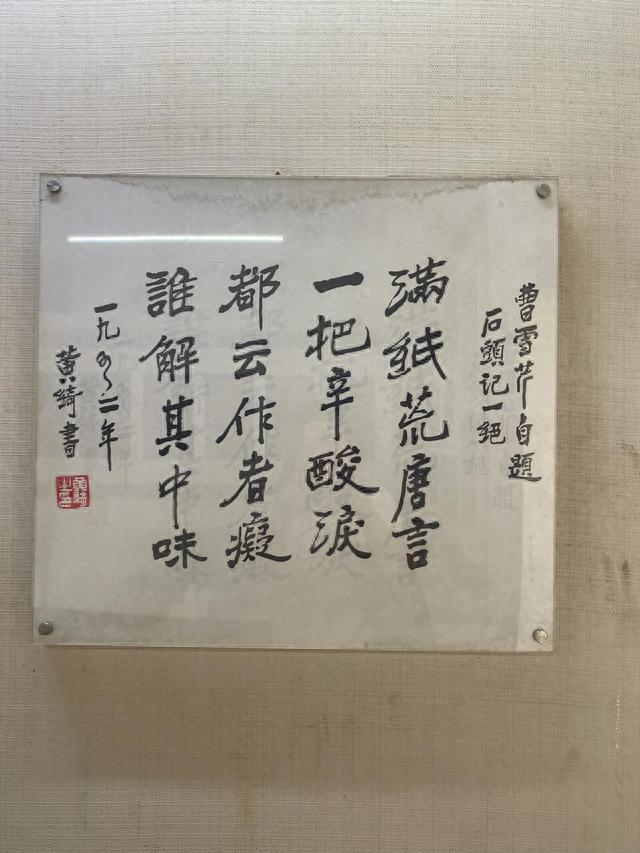 曹雪芹自題
石頭記一絕
滿紙荒唐言
一把辛酸淚
都云作者癡
誰解其中味
一九二年
黃綺書